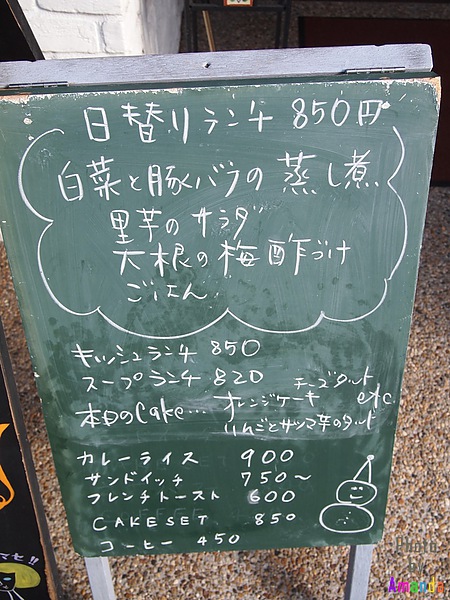 日替りランチ 850円
白菜と豚バラの蒸し煮
里芋のサラダ
大根の梅酢づけ
ごはん
キッシュランチ 850
スープランチ 820
チーズタルト
本日のCake… オレンジケーキ etc.
りんごとサツマ芋のタルト
カレーライス 900
サンドイッチ 750〜
フレンチトースト 600
CAKE SET 850
コーヒー 450
Photo
by
Amanda